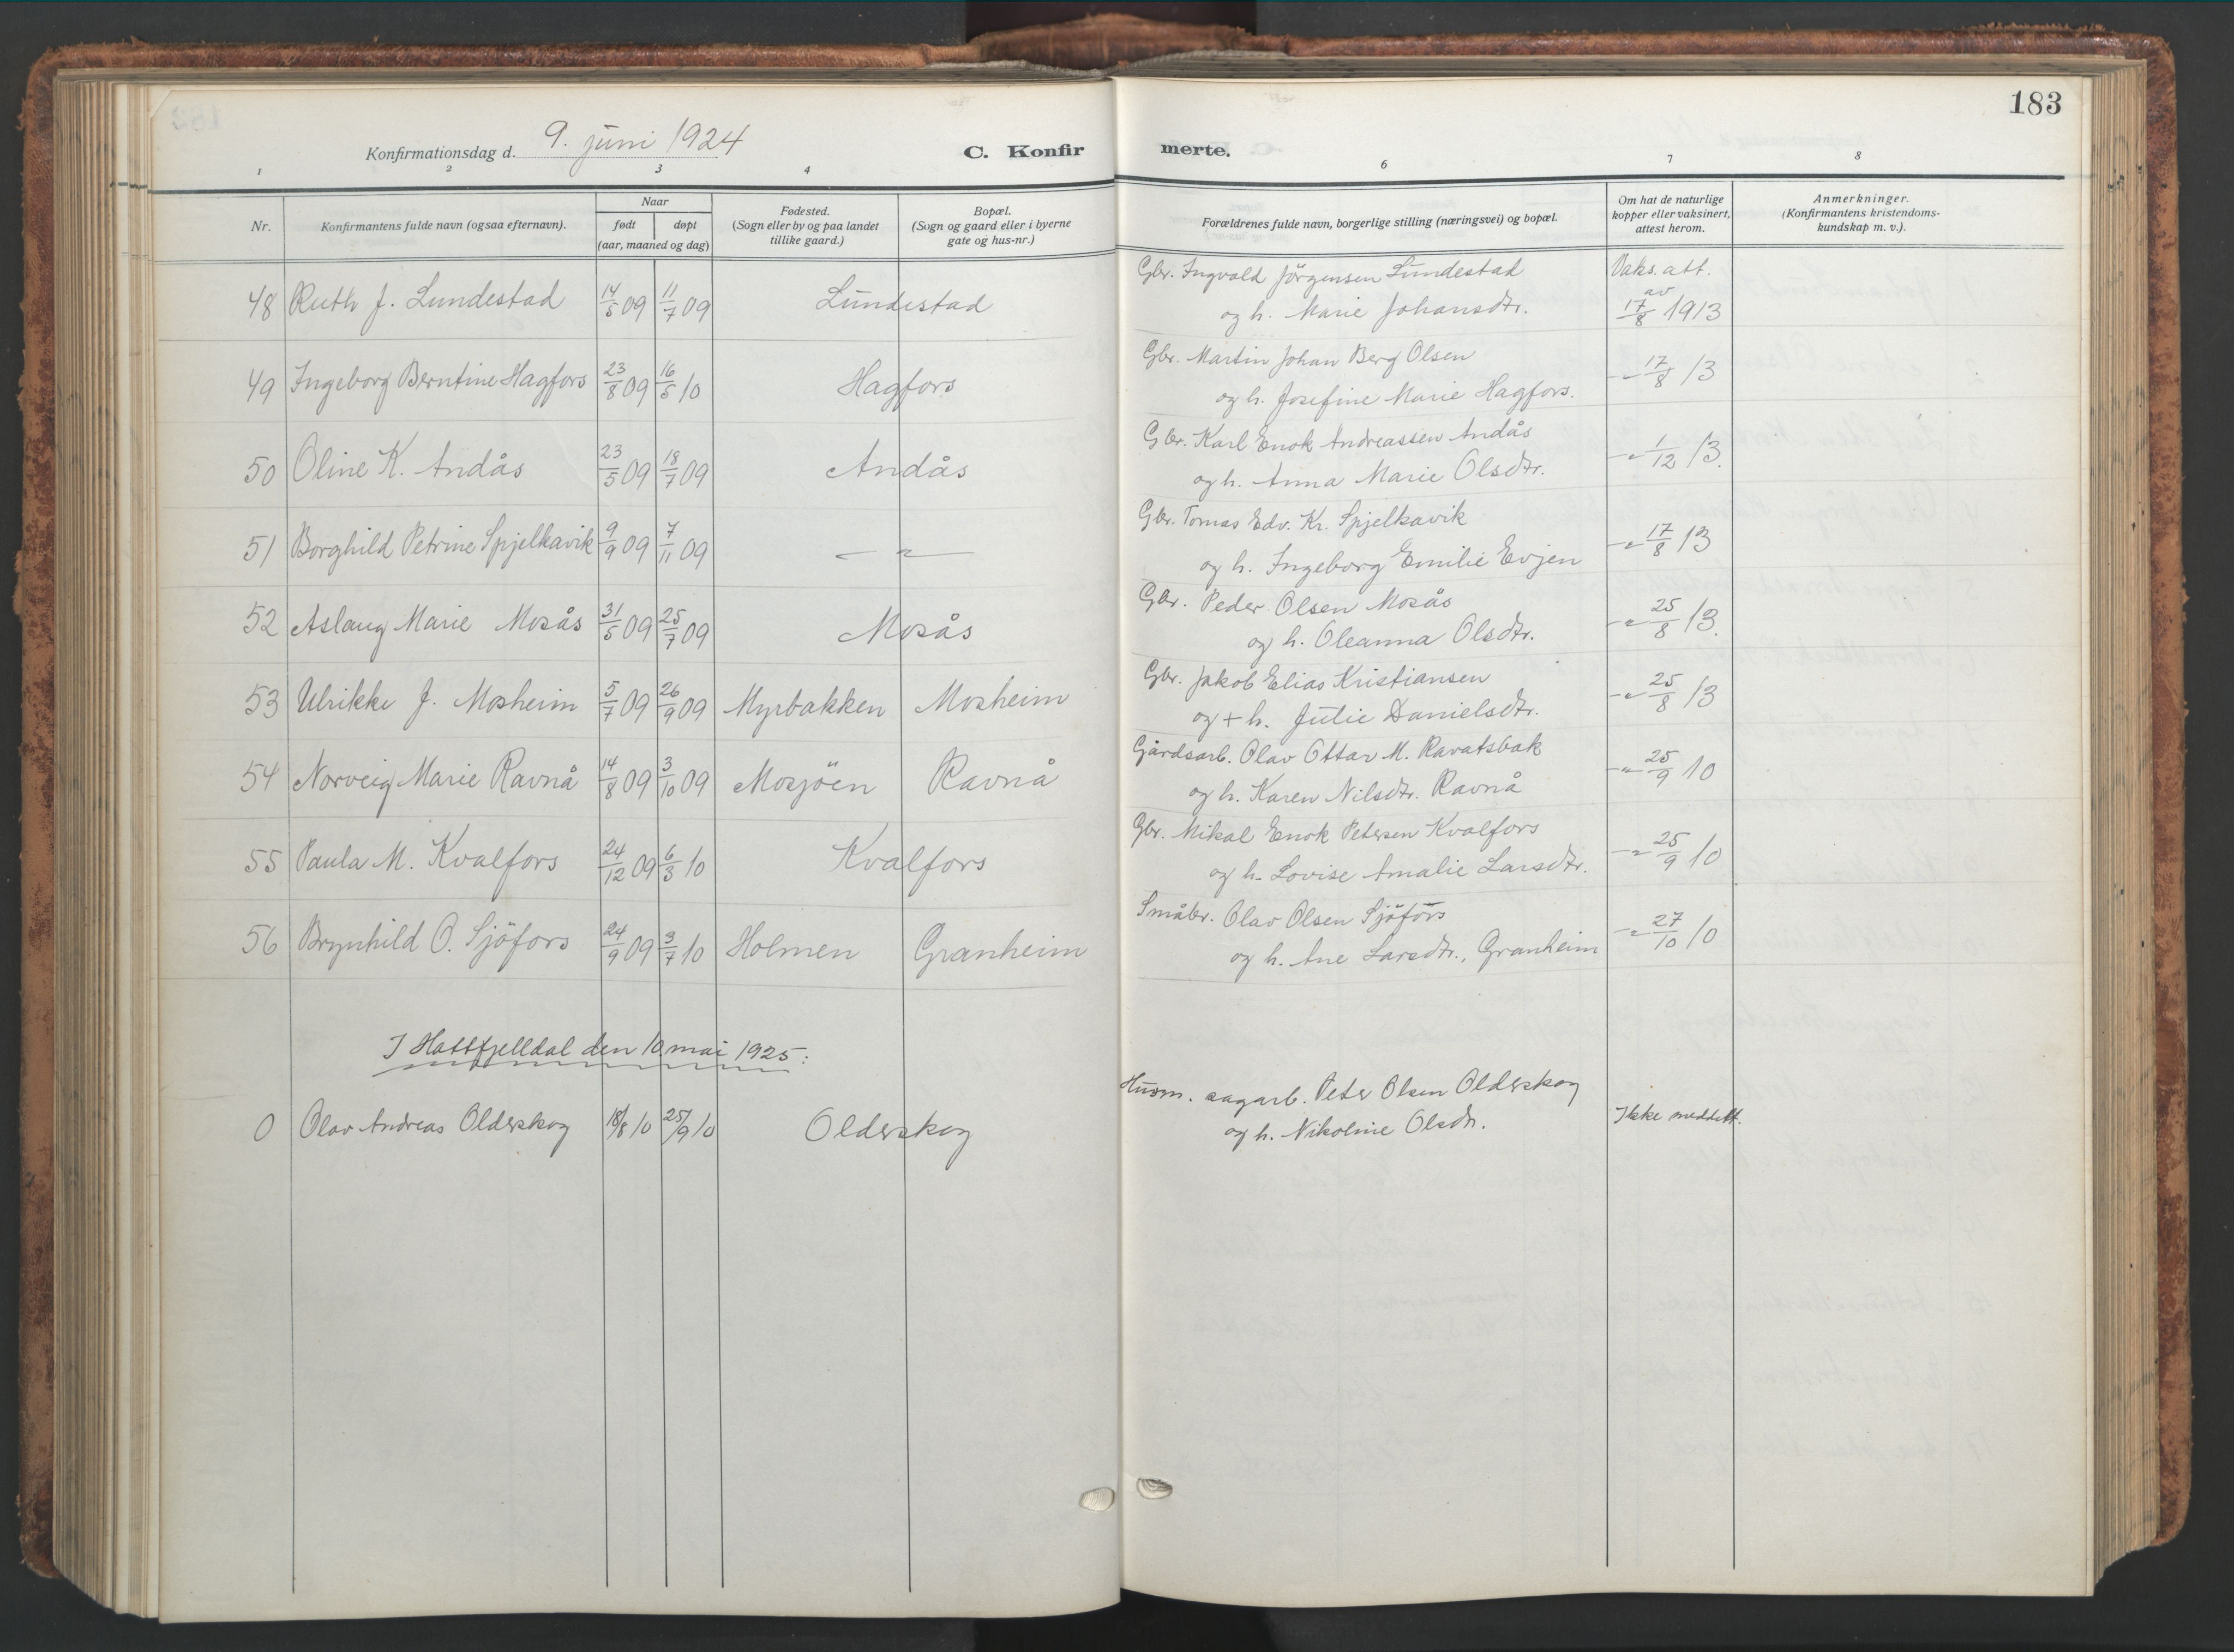 183
Konfirmationsdag d. 9. juni 1924
C. Konfirmerte.
1 2 3 4 6 7 8
Nr.
Konfirmantens fulde navn (ogsaa efternavn).
Naar
født døpt
(aar, maaned og dag)
Fødested.
(Sogn eller by og paa landet
tillike gaard.)
Bopæl.
(Sogn og gaard eller i byerne
gate og hus-nr.)
Forældrenes fulde navn, borgerlige stilling (næringsvei) og bopæl.
Om hat de naturlige
kopper eller vaksinert,
attest herom.
Anmerkninger.
(Konfirmantens kristendoms-
kundskap m. v.).
48 Ruth J. Lundestad 14/5 09 11/7 09 Lundestad
Gbr. Ingvald Jörgensen Lundestad
og h. Marie Johansdtr.
Vaks. att.
av
17/8 1913
49 Ingeborg Berntine Hagfors 23/8 09 16/5 10 Hagfors
Gbr. Martin Johan Berg Olsen
og h. Josefine Marie Hagfors.
-"- 17/8 13
50 Oline K. Andås 23/5 09 18/7 09 Andås
Gbr. Karl Enok Andreassen Andås
og h. Anna Marie Olsdtr.
-"- 1/12 13.
51 Borghild Petrine Spjelkavik 9/9 09 7/11 09 — " —
Gbr. Tomas Edv. Kr. Spjelkavik
og h. Ingeborg Emilie Evjen
-"- 17/8 13
52 Aslaug Marie Mosås 31/5 09 25/7 09 Mosås
Gbr. Peder Olsen Mosås
og h. Oleanna Olsdtr.
-"- 25/8 13.
53 Ulrikke J. Mosheim 5/7 09 26/9 09 Myrbakken Mosheim
Gbr. Jakob Elias Kristiansen
og + h. Julie Danielsdtr.
-"- 25/8 13
54 Norveig Marie Ravnå 14/8 09 3/10 09 Mosjöen Ravnå
Gårdsarb. Olav Ottar M. Ravatsbak
og h. Karen Nilsdtr. Ravnå
-"- 25/9 10
55 Paula M. Kvalfors 24/12 09 6/3 10 Kvalfors
Gbr. Mikal Enok Petersen Kvalfors
og h. Lovise Amalie Larsdtr.
-"- 25/9 10
56 Brynhild O. Sjöfors 24/9 09 3/7 10 Holmen Granheim
Småbr. Olav Olsen Sjöfors
og h. Ane Larsdtr., Granheim
-"- 27/10 10
I Hattfjelldal den 10. mai 1925:
0 Olav Andreas Olderskog 18/8 10 25/9 10 Olderskog
Husm. sagarb. Peter Olsen Olderskog
og h. Nikoline Olsdtr.
Ikke meddelt.